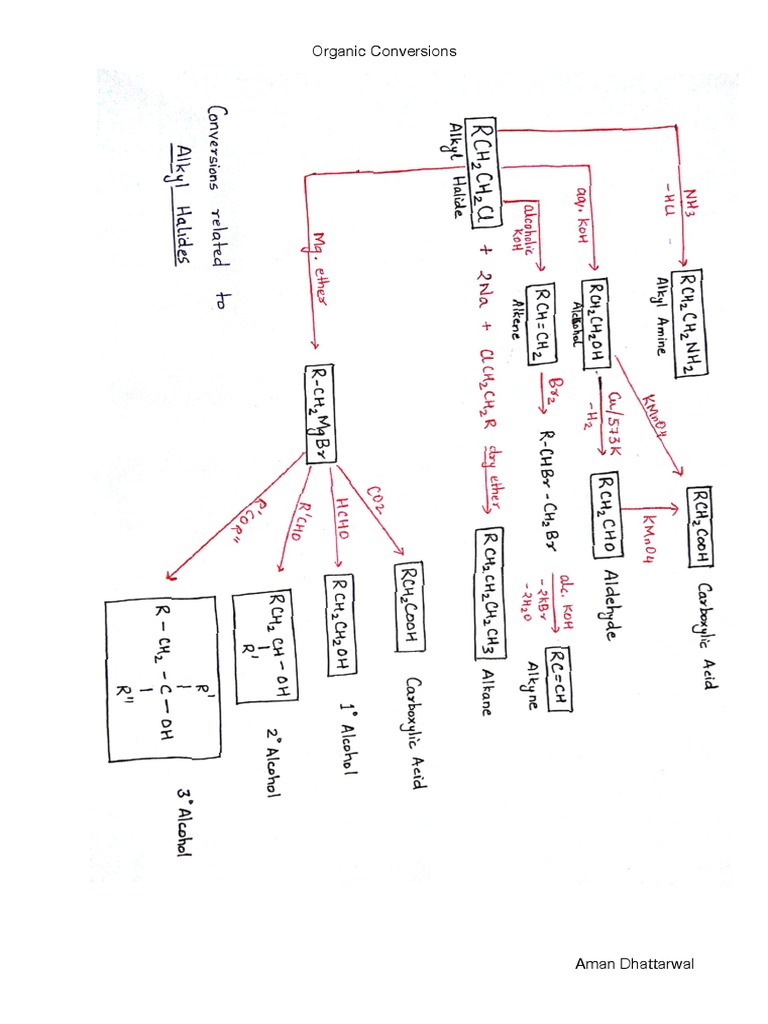 Organic Conversions
Conversions related to
Alkyl Halides
RCH2CH2Cl
Alkyl Halide
NH3
-HCl
RCH2CH2NH2
Alkyl Amine
aq. KOH
RCH2CH2OH
Alcohol
KMnO4
Cu/573K
-H2
RCH2CHO
Aldehyde
KMnO4
RCH2COOH
Carboxylic Acid
alcoholic
KOH
RCH=CH2
Alkene
Br2
R-CHBr-CH2Br
alc. KOH
-2KBr
-2H2O
RC=CH
Alkyne
+ 2Na + ClCH2CH2R
dry ether
RCH2CH2CH2CH3
Alkane
Mg. ether
R-CH2MgBr
CO2
RCH2COOH
Carboxylic Acid
HCHO
RCH2CH2OH
1° Alcohol
R'CHO
RCH2CH-OH
R'
2° Alcohol
R'COR"
R'
R-CH2-C-OH
R"
3° Alcohol
Aman Dhattarwal